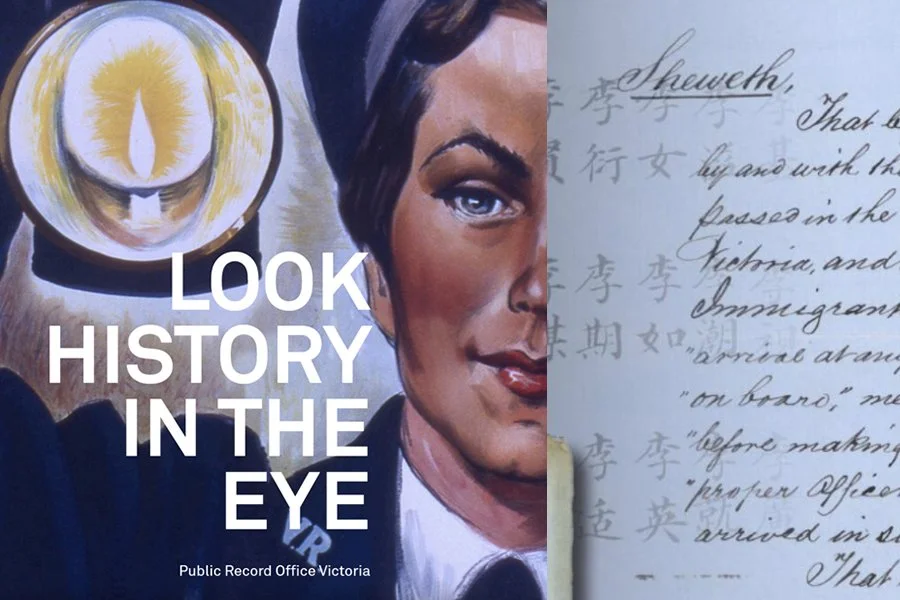 LOOK
HISTORY
IN THE
EYE
VR
Public Record Office Victoria
Sheweth,
That be
by and with th
passed in the
Victoria, and
Immigrant
"arrival at any
"on board," me
"before making
"proper Office
arrived in s
That
李女
李衍
李潮
李如
李期
李英